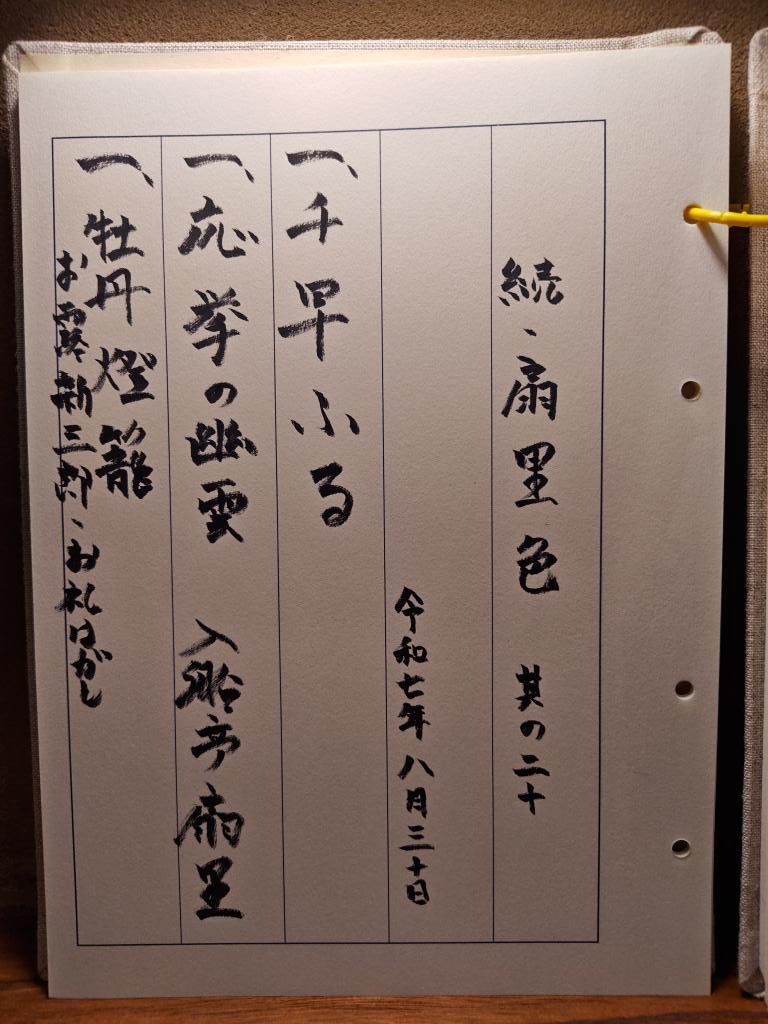 続、扇里色 其の二十
令和七年八月三十日
一、千早ふる
一、応挙の幽霊 入船亭扇里
一、牡丹燈籠
お露新三郎、お札はがし